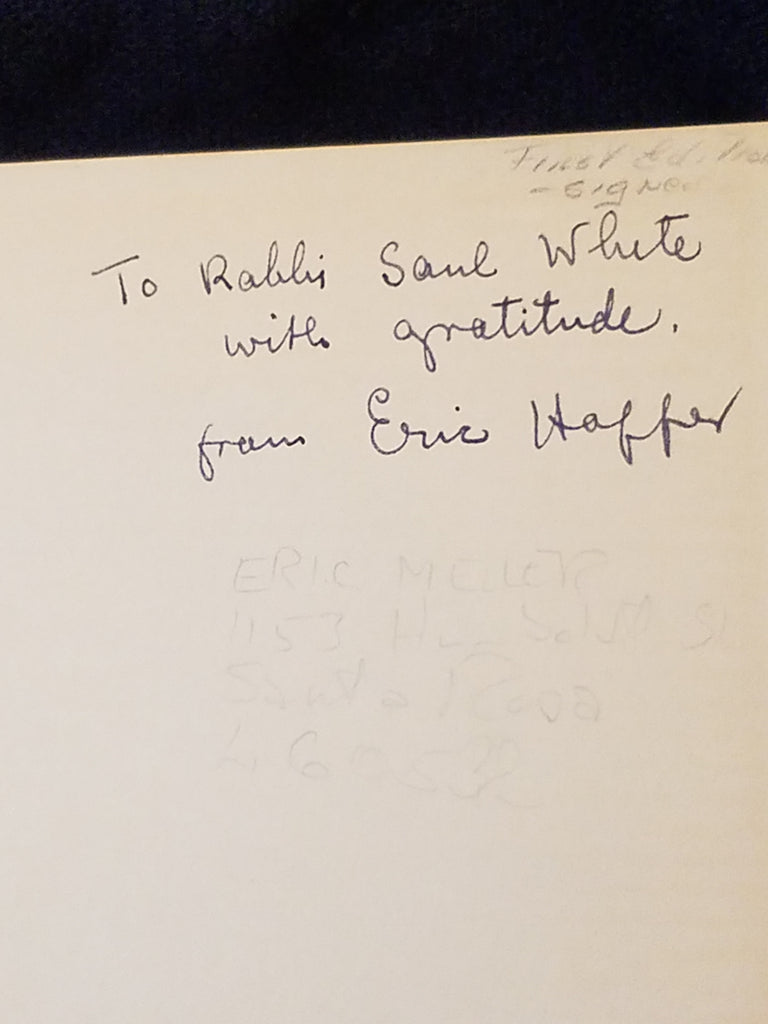 First Edition
- signed
To Rabbi Saul White
with gratitude.
from Eric Hoffer
ERIC MELLER
1153 Humboldt St
Santa Rosa